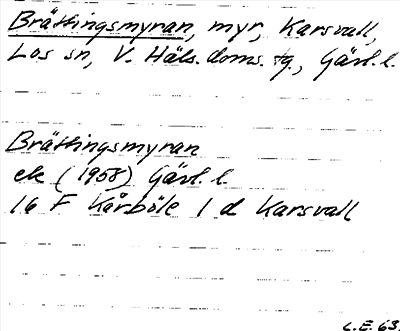 Brättingsmyran, myr, Karsvall,
Los sn, V. Häls. doms. tg., Gävl. l.
Brättingsmyran
ek (1958) Gävl. l.
16 F Kårböle 1 d Karsvall
L.E. 63.